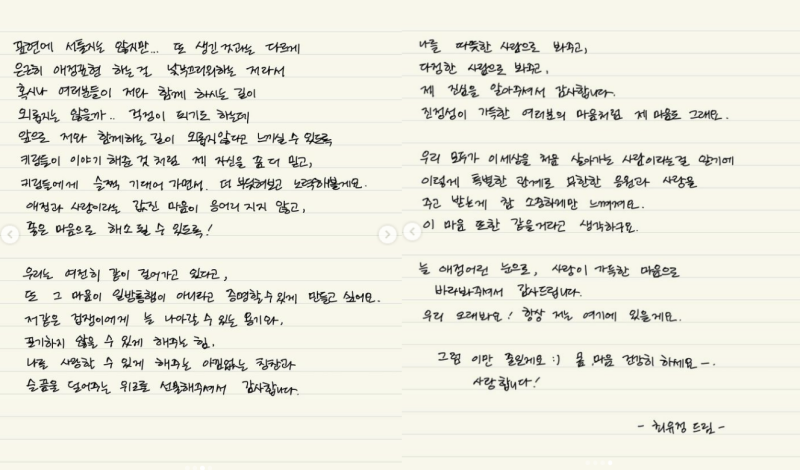 표현에 서툴지는 않지만... 또 생긴 것과는 다르게
은근히 애정표현 하는걸 낯부끄러워하는 저라서
혹시나 여러분들이 저와 함께 하시는 길이
외롭지는 않을까.. 걱정이 되기도 하는데
앞으로 저와 함께하는 길이 외롭지않다고 느끼실 수 있도록
키링들이 이야기 해준 것 처럼 제 자신을 좀 더 믿고,
키링들에게 슬쩍 기대어 가면서. 더 부딪혀보고 노력해볼게요.
애정과 사랑이라는 값진 마음이 응어리 지지 않고,
좋은 마음으로 해소 될 수 있도록!
우리는 여전히 같이 걸어가고 있다고,
또 그 마음이 일방통행이 아니라고 증명할 수 있게 만들고 싶어요.
저같은 겁쟁이에게 늘 나아갈 수 있는 용기와,
포기하지 않을 수 있게 해주는 힘,
나를 사랑할 수 있게 해주는 아낌없는 칭찬과
슬픔을 덜어주는 위로를 선물해주셔서 감사합니다.
나를 따뜻한 사람으로 봐주고,
다정한 사람으로 봐주고,
제 진심을 알아주셔서 감사합니다.
진정성이 가득한 여러분의 마음처럼 제 마음도 그래요.
우리 모두가 이 세상을 처음 살아가는 사람이라는걸 알기에
이렇게 특별한 관계로 무한한 응원과 사랑을
주고 받는게 참 소중하게만 느껴져요.
이 마음 또한 같을거라고 생각하구요.
늘 애정어린 눈으로, 사랑이 가득한 마음으로
바라봐주셔서 감사드립니다.
우리 오래봐요! 항상 저는 여기에 있을게요.
그럼 이만 줄일게요 :) 몸, 마음 건강히 하세요ㅡ.
사랑합니다!
- 최유정 드림 -